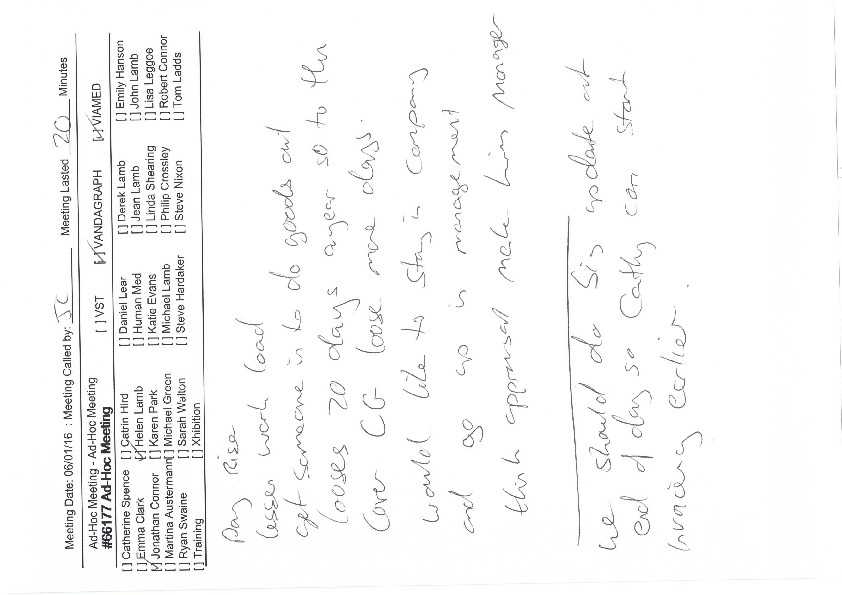 Meeting Date: 06/01/16 : Meeting Called by: JC Meeting Lasted 20 Minutes
Ad-Hoc Meeting - Ad-Hoc Meeting [ ] VST [✓] VANDAGRAPH [✓] VIAMED
#66177 Ad-Hoc Meeting
[ ] Catherine Spence [ ] Catrin Hird [ ] Daniel Lear [ ] Derek Lamb [ ] Emily Hanson
[ ] Emma Clark [✓] Helen Lamb [ ] Human Med [ ] Jean Lamb [ ] John Lamb
[✓] Jonathan Connor [ ] Karen Park [ ] Katie Evans [ ] Linda Shearing [ ] Lisa Leggoe
[ ] Martina Austermann [ ] Michael Green [ ] Michael Lamb [ ] Philip Crossley [ ] Robert Connor
[ ] Ryan Swaine [ ] Sarah Walton [ ] Steve Hardaker [ ] Steve Nixon [ ] Tom Ladds
[ ] Training [ ] Xhibition
Pay Rise
lesser work load
get someone in to do goods out
looses 20 days a year so to then
cover CG loose more days.
would like to stay in company
and go up in management
think appraisal make him manager
we should do Sis update at
end of day so Cathy can start
invoicing earlier.